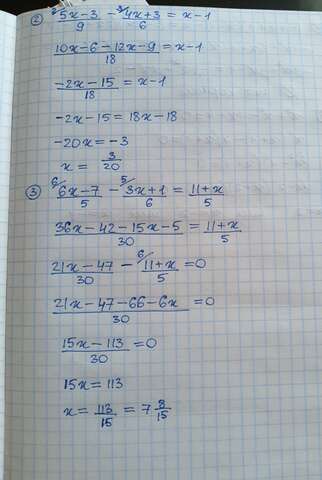 ② ²⁄ 5x-3/9 - ³⁄ 4x+3/6 = x-1
10x-6-12x-9/18 = x-1
-2x-15/18 = x-1
-2x-15 = 18x-18
-20x = -3
x = 3/20
③ ⁶⁄ 6x-7/5 - ⁵⁄ 3x+1/6 = 11+x/5
36x-42-15x-5/30 = 11+x/5
21x-47/30 - ⁶⁄ 11+x/5 = 0
21x-47-66-6x/30 = 0
15x-113/30 = 0
15x = 113
x = 113/15 = 7 8/15